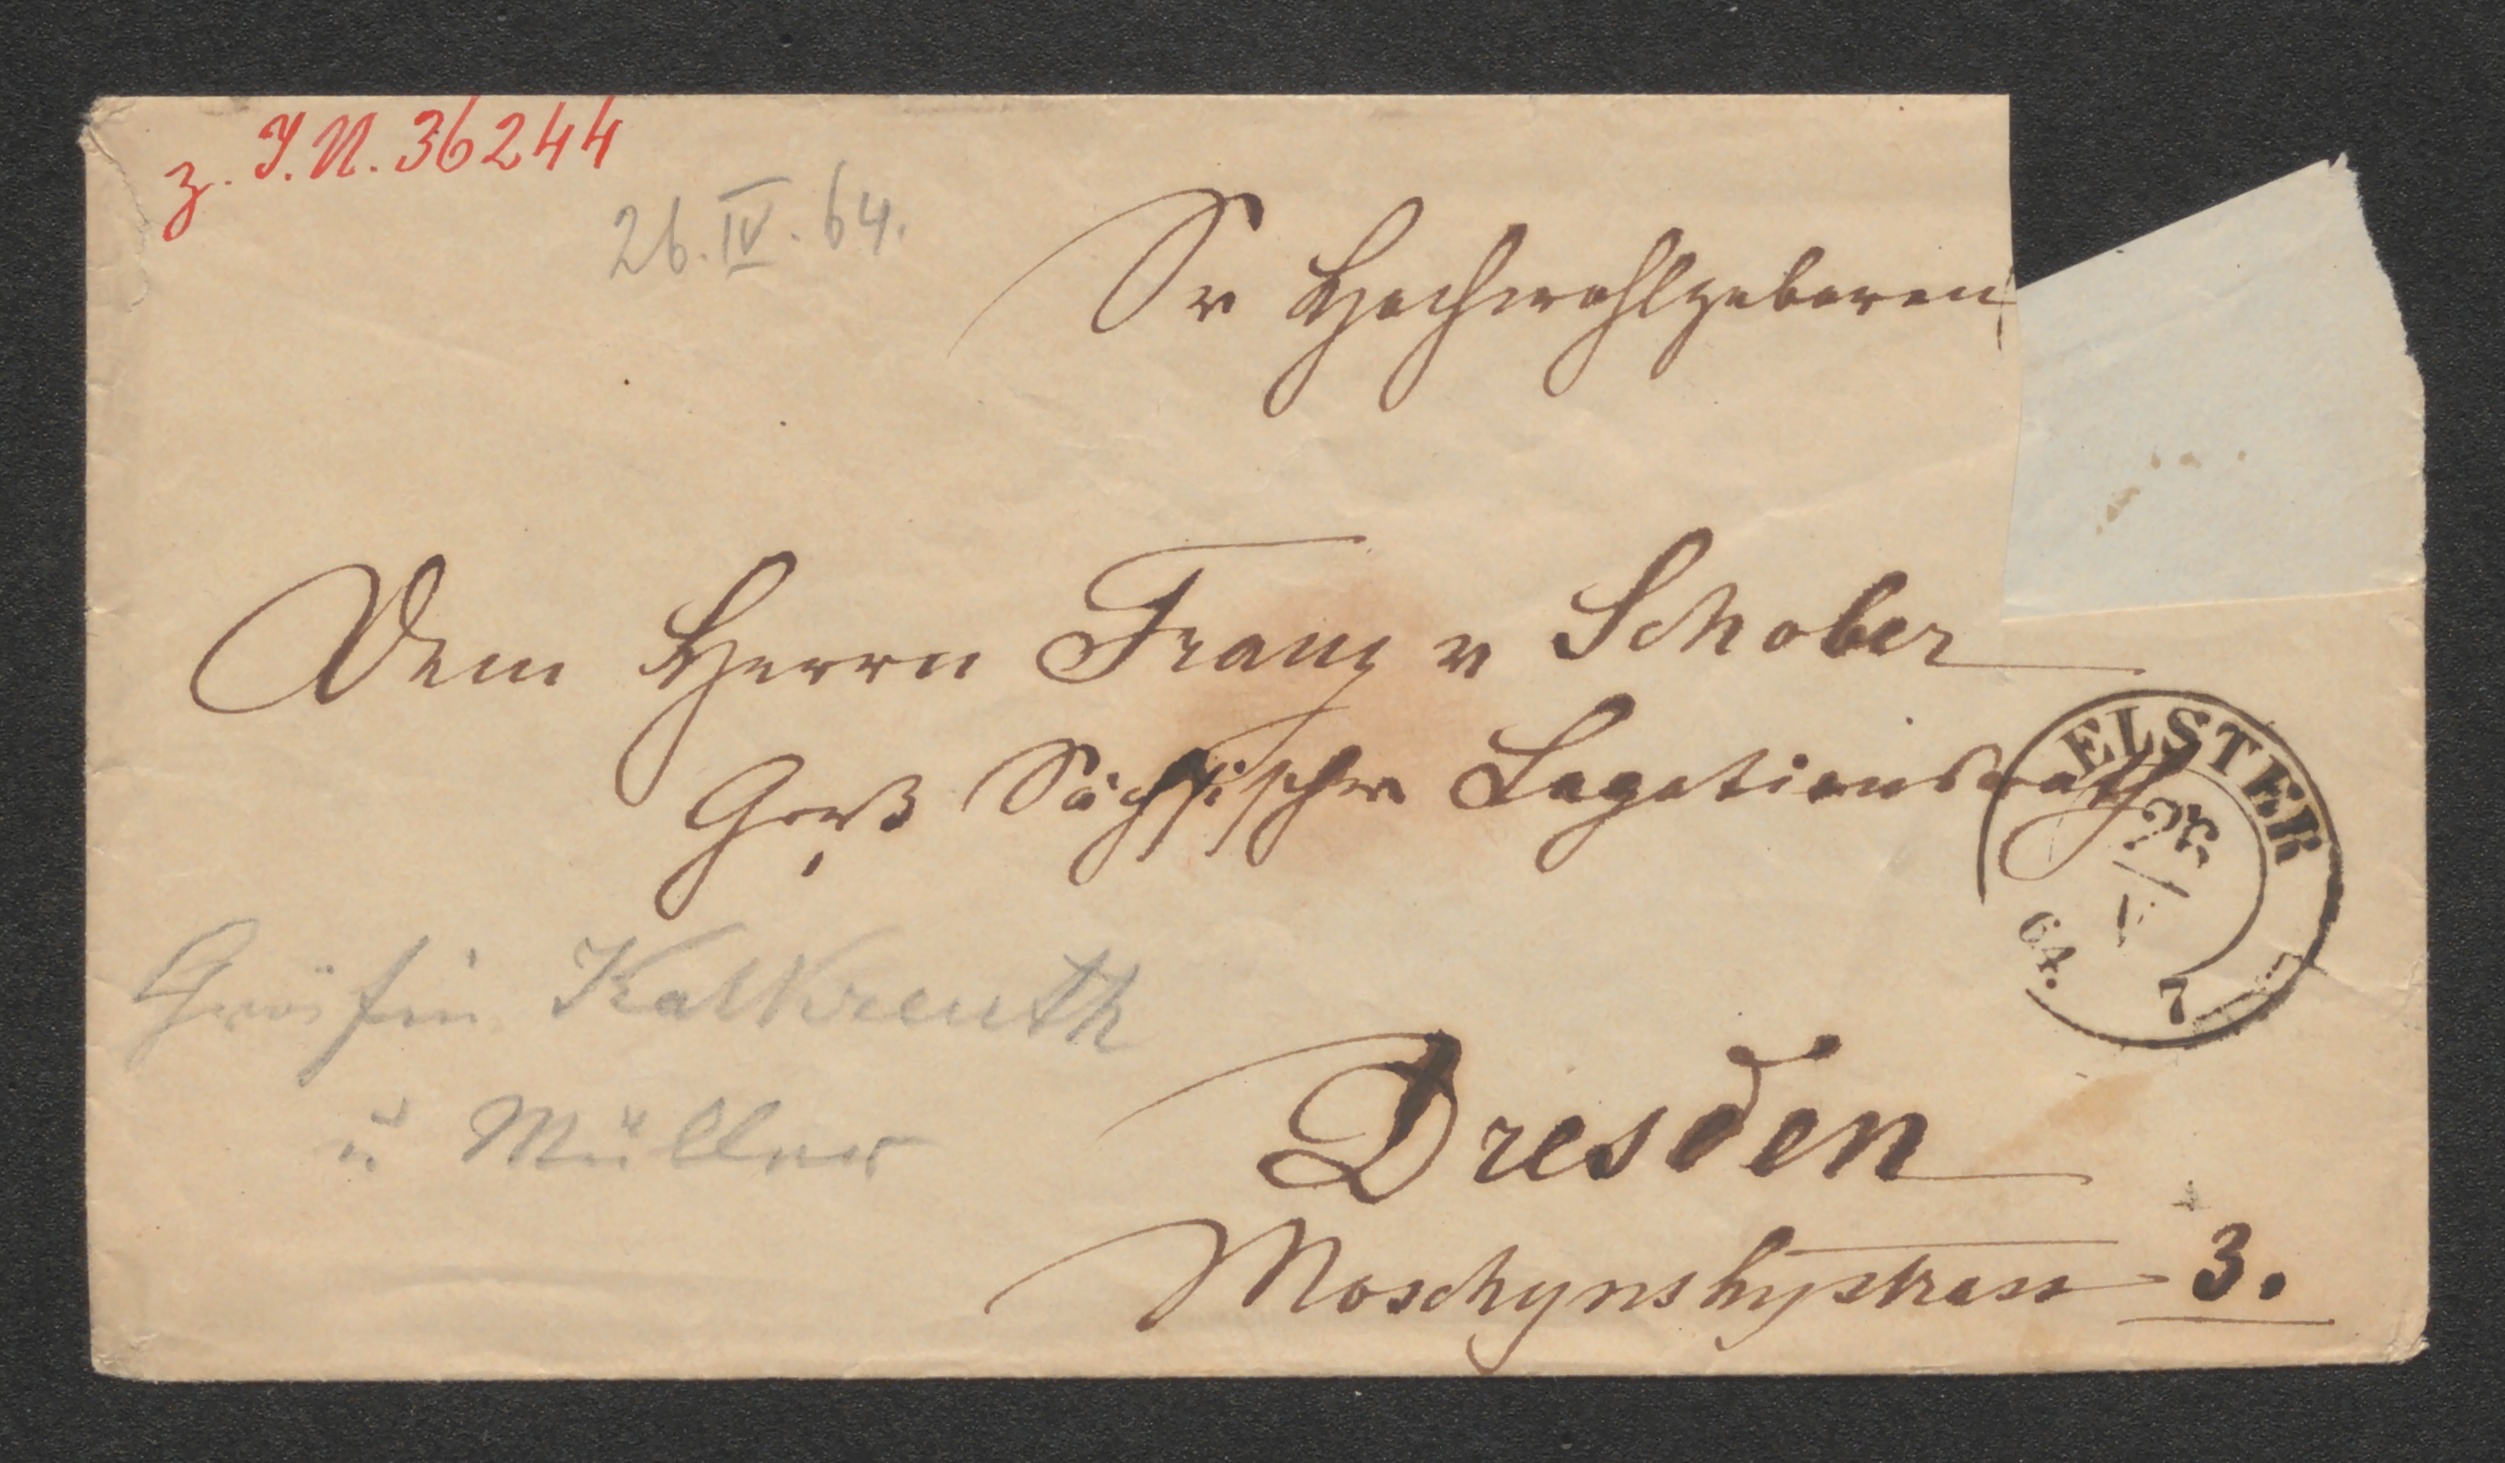 z. I.N. 36244
26. IV. 64.
Sr Hochwohlgeboren
Dem Herrn Franz v Schober
Groß Sächsischer Legationsrath
ELSTER
26
64.
7
Gräfin Kalkreuth
u Müller
Dresden
Moschynskystrasse 3.